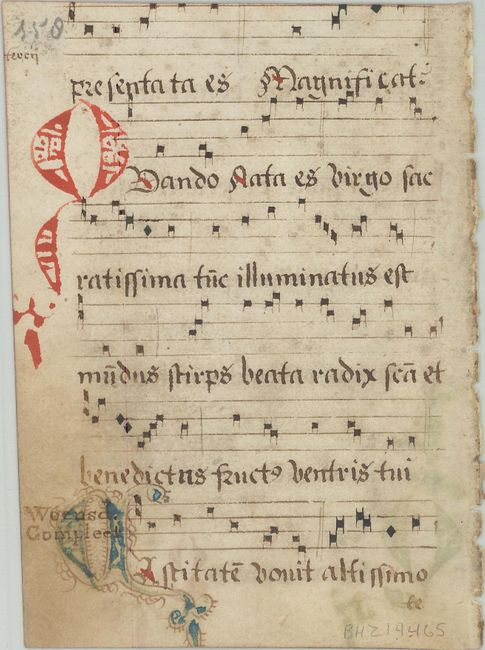 158
presentata es Magnificat:
Qvando nata es virgo sac
ratissima tūc illuminatus est
mūdus stirps beata radix scā et
benedictus fructꝰ ventris tui
Woensd.
Compleet
Castitatē vovit altissimo
te
BHZ14465